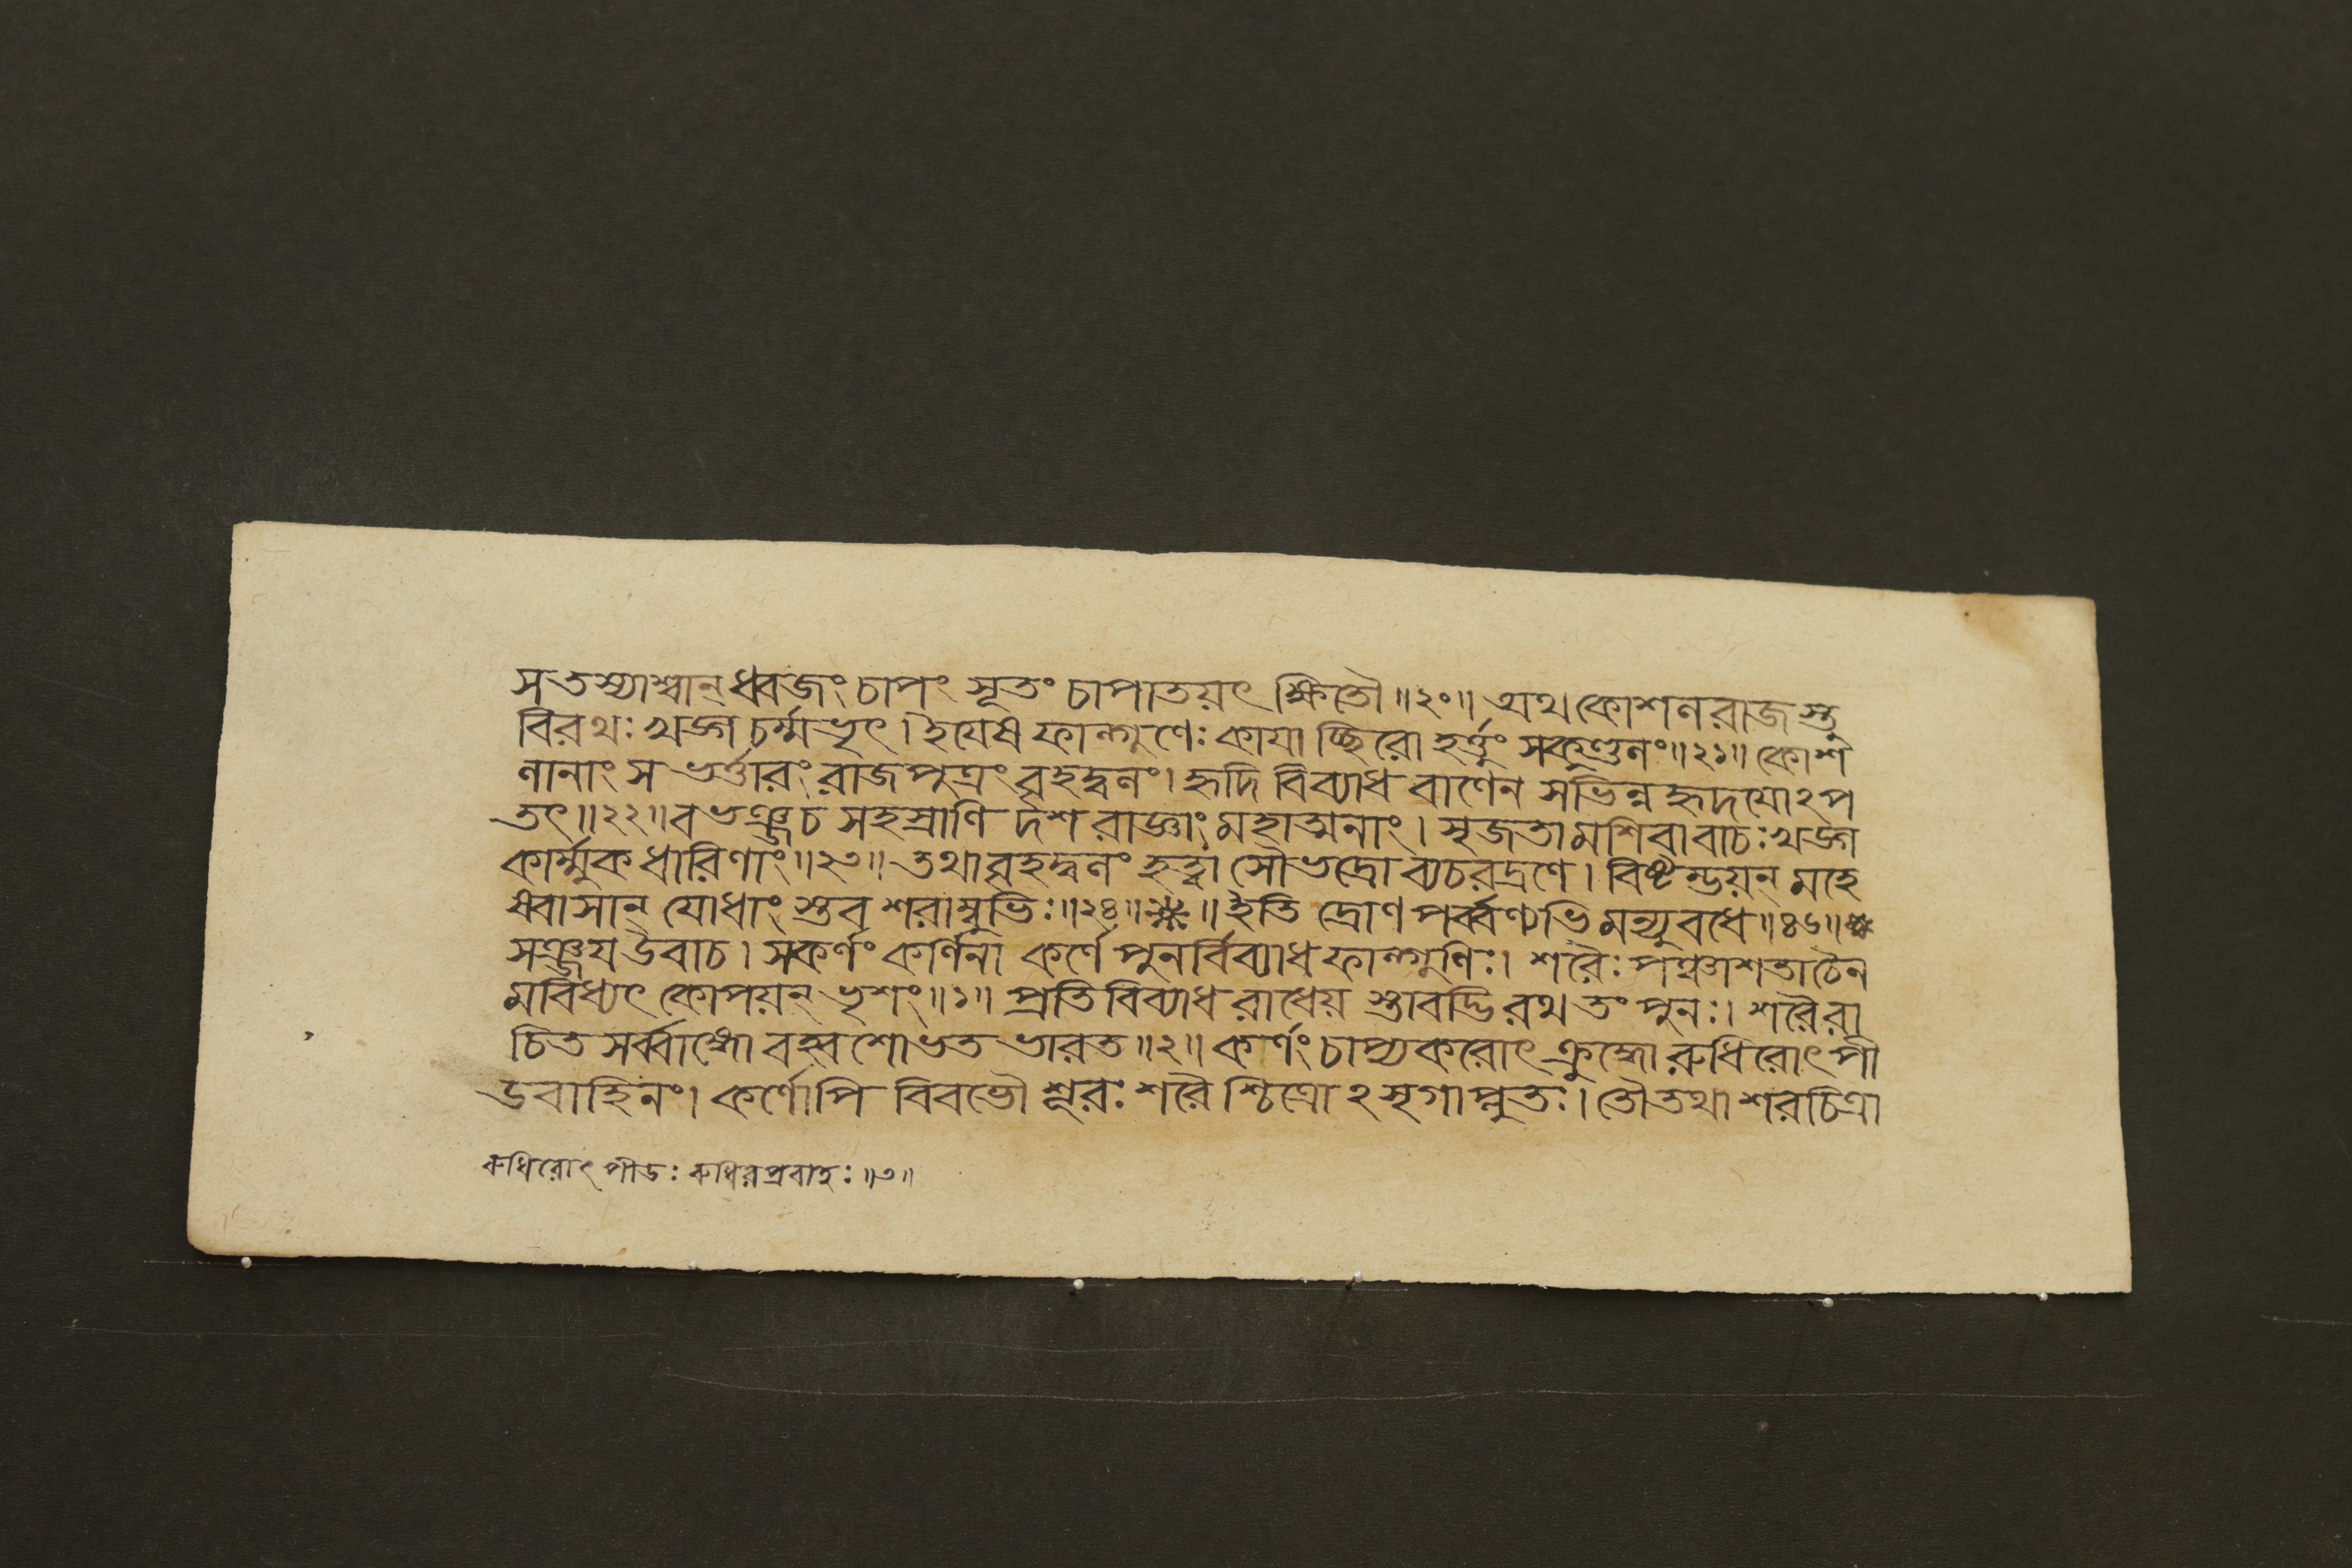 স তস্যাশ্বান্ ধ্বজং চাপং সূতং চাপাতয়ৎ ক্ষিতৌ॥২০॥ অথ কোশলরাজস্তু
বিরথঃ খড্গচর্ম্মভৃৎ। ইয়েষ ফাল্গুণেঃ কায়াচ্ছিরো হর্ত্তুং সকুণ্ডলং॥২১॥ কোশ
লানাং স ভর্ত্তারং রাজপুত্রং বৃহদ্বলং। হৃদি বিব্যাধ বাণেন স ভিন্নহৃদয়োঽপ
তৎ॥২২॥ বভঞ্জ চ সহস্রাণি দশ রাজ্ঞাং মহাত্মনাং। সৃজতামশিবা বাচঃ খড্গ
কার্ম্মুকধারিণাং॥২৩॥ তথা বৃহদ্বলং হত্বা সৌভদ্রো ব্যচরদ্রণে। বিষ্টম্ভয়ন্ মহে
ষ্বাসান্ যোধাংস্তব শরাম্বুভিঃ॥২৪॥❋॥ ইতি দ্রোণপর্ব্বণ্যভিমন্যুবধে॥৪৬॥❋
সঞ্জয় উবাচ। স কর্ণং কর্ণিনা কর্ণে পুনর্বিব্যাধ ফাল্গুণিঃ। শরৈঃ পঞ্চাশতা চৈন
মবিধ্যৎ কোপয়ন্ ভৃশং॥১॥ প্রতিবিব্যাধ রাধেয়স্তাবদ্ভিরথ তং পুনঃ। শরৈরা
চিতসর্ব্বাঙ্গো বহ্বশোভত ভারত॥২॥ কর্ণং চাপ্যকরোৎ ক্রুদ্ধো রুধিরোৎপী
ডবাহিনং। কর্ণোপি বিবভৌ শূরঃ শরৈশ্চিত্রোঽসৃগাপ্লুতঃ। তৌ তথা শরচিত্রা
রুধিরোৎপীডঃ রুধিরপ্রবাহঃ॥৩॥